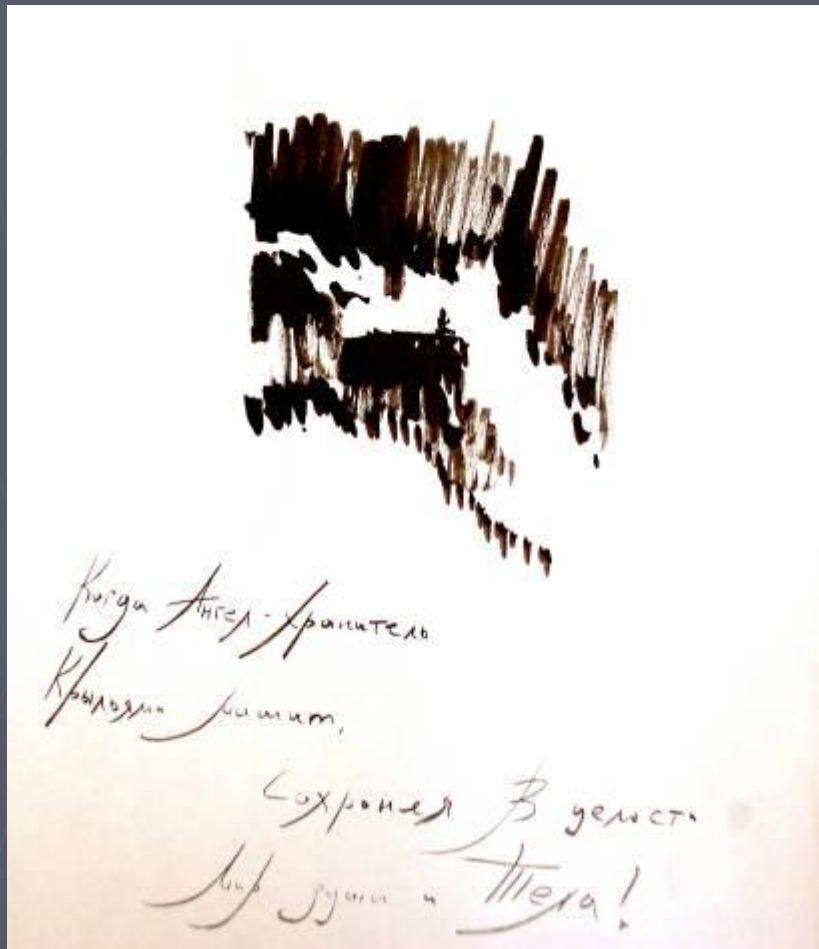 Когда Ангел-Хранитель
Крыльями машит,
Сохраняя В
Мир души и Тела!